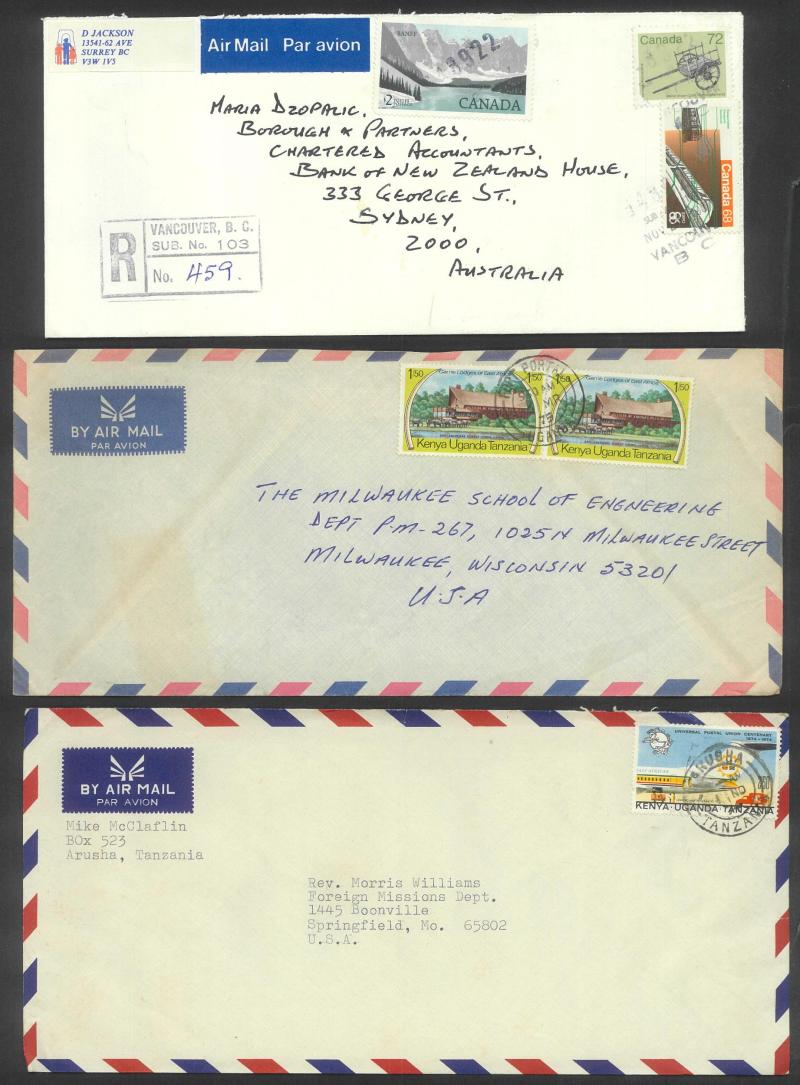 D JACKSON
13541-62 AVE
SURREY BC
V3W 1V5
Air Mail Par avion
BANFF
$2
CANADA
3922
Canada 72
Canada 68
Expo 86
SUB
NOV
VANCOUVER
B C
MARIA DZOPALIC,
BOROUGH & PARTNERS,
CHARTERED ACCOUNTANTS,
BANK OF NEW ZEALAND HOUSE,
333 GEORGE ST.,
SYDNEY,
2000,
AUSTRALIA
R
VANCOUVER, B. C.
SUB. No. 103
No. 459.
BY AIR MAIL
PAR AVION
1/50 Game Lodges of East Africa 1/50
Kenya Uganda Tanzania
1/50 Game Lodges of East Africa 1/50
Kenya Uganda Tanzania
PORTAL
AM
75
UGANDA
THE MILWAUKEE SCHOOL OF ENGNEERING
DEPT P.M-267, 1025N MILWAUKEE STREET
MILWAUKEE, WISCONSIN 53201
U.S.A
BY AIR MAIL
PAR AVION
UNIVERSAL POSTAL UNION CENTENARY
1874-1974
KENYA·UGANDA·TANZANIA
ARUSHA
TANZANIA
Mike McClaflin
BOx 523
Arusha, Tanzania
Rev. Morris Williams
Foreign Missions Dept.
1445 Boonville
Springfield, Mo. 65802
U.S.A.